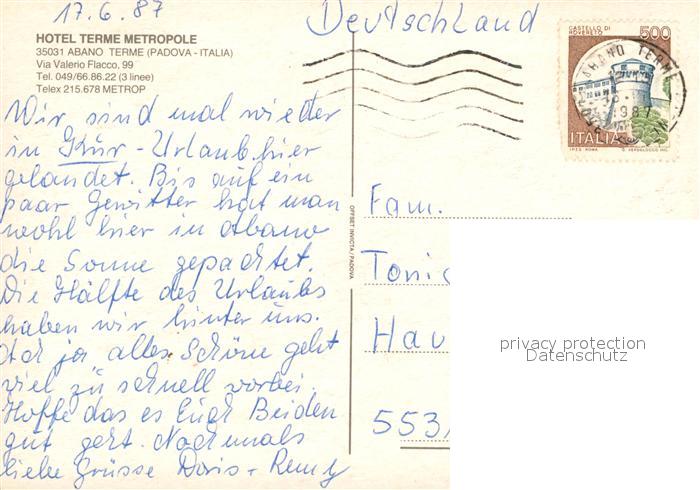 17.6.87
Deutschland
HOTEL TERME METROPOLE
35031 ABANO TERME (PADOVA - ITALIA)
Via Valerio Flacco, 99
Tel. 049/66.86.22 (3 linee)
Telex 215.678 METROP
Wir sind mal wieder
in Kur-Urlaub hier
gelandet. Bis auf ein
paar Gewitter hat man
wohl hier in Abano
die Sonne gepachtet.
Die Hälfte des Urlaubs
haben wir hinter uns.
Ach ja alles Schöne geht
viel zu schnell vorbei.
Hoffe das es Euch Beiden
gut geht. Nochmals
liebe Grüsse Doris + Remy
OFFSET INVICTA/PADOVA
CASTELLO DI
ROVERETO
500
ABANO TERME
ITALIA
Fam.
Toni
Hau
553
privacy protection
Datenschutz